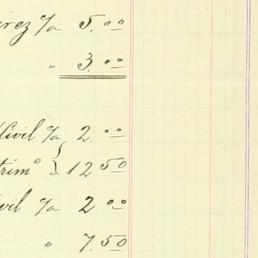 irez c/a 5.00
" 3.00
Civil c/a 2.00
trimo } 12 50
ivil c/a 2 00
" 7.50